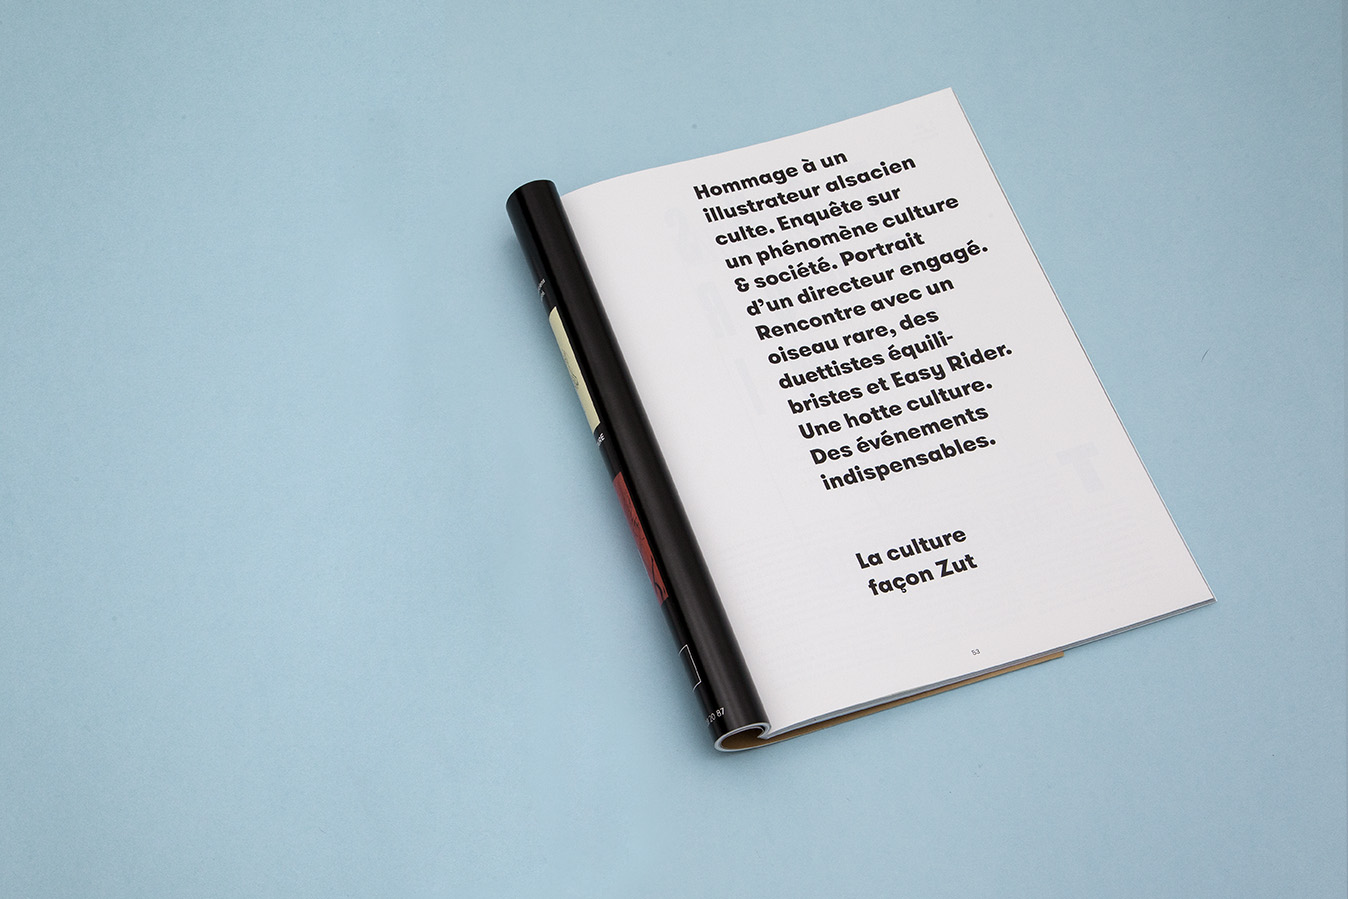 Hommage à un
illustrateur alsacien
culte. Enquête sur
un phénomène culture
& société. Portrait
d’un directeur engagé.
Rencontre avec un
oiseau rare, des
duettistes équili-
bristes et Easy Rider.
Une hotte culture.
Des événements
indispensables.
La culture
façon Zut
53
20 87